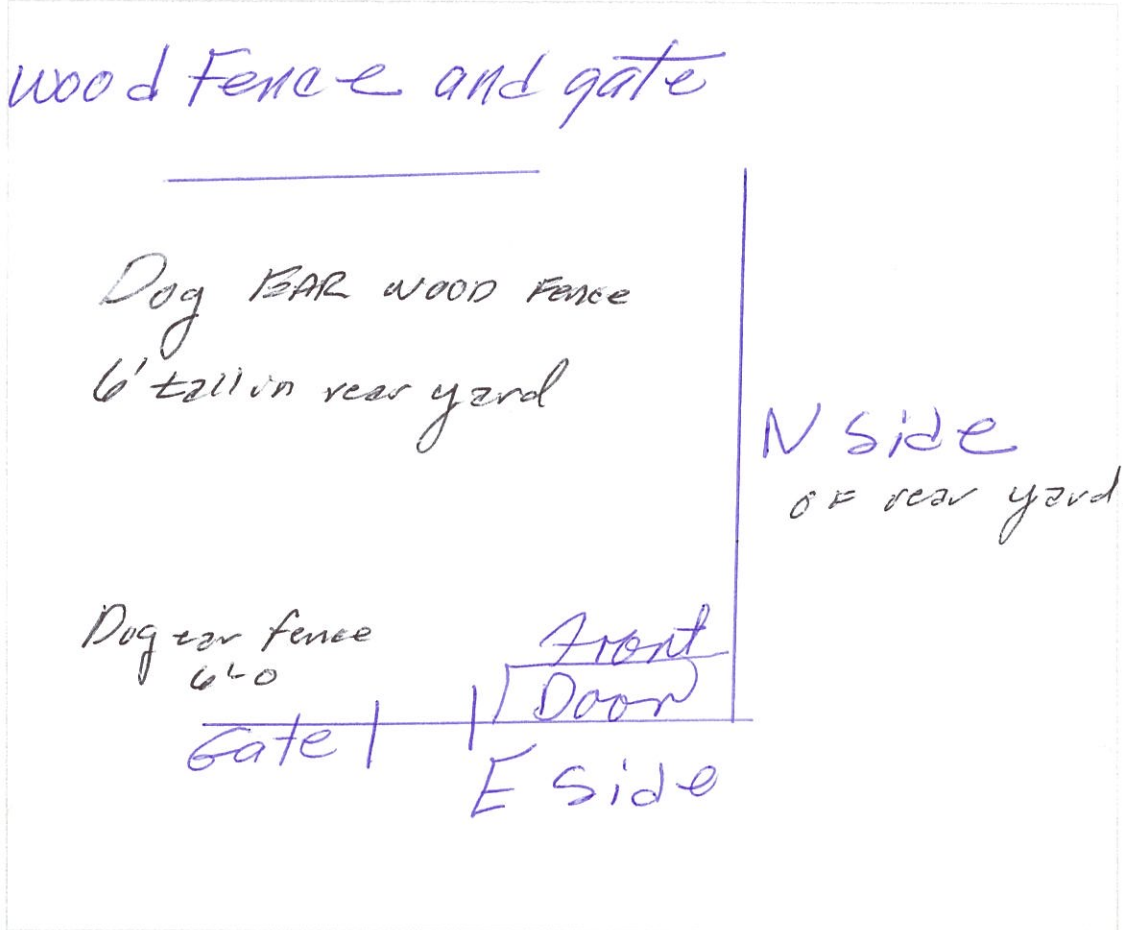 wood Fence and gate
Dog EAR WOOD Fence
6' tall in rear yard
N Side
of rear yard
Dog ear fence
Front
Door
Gate
E Side